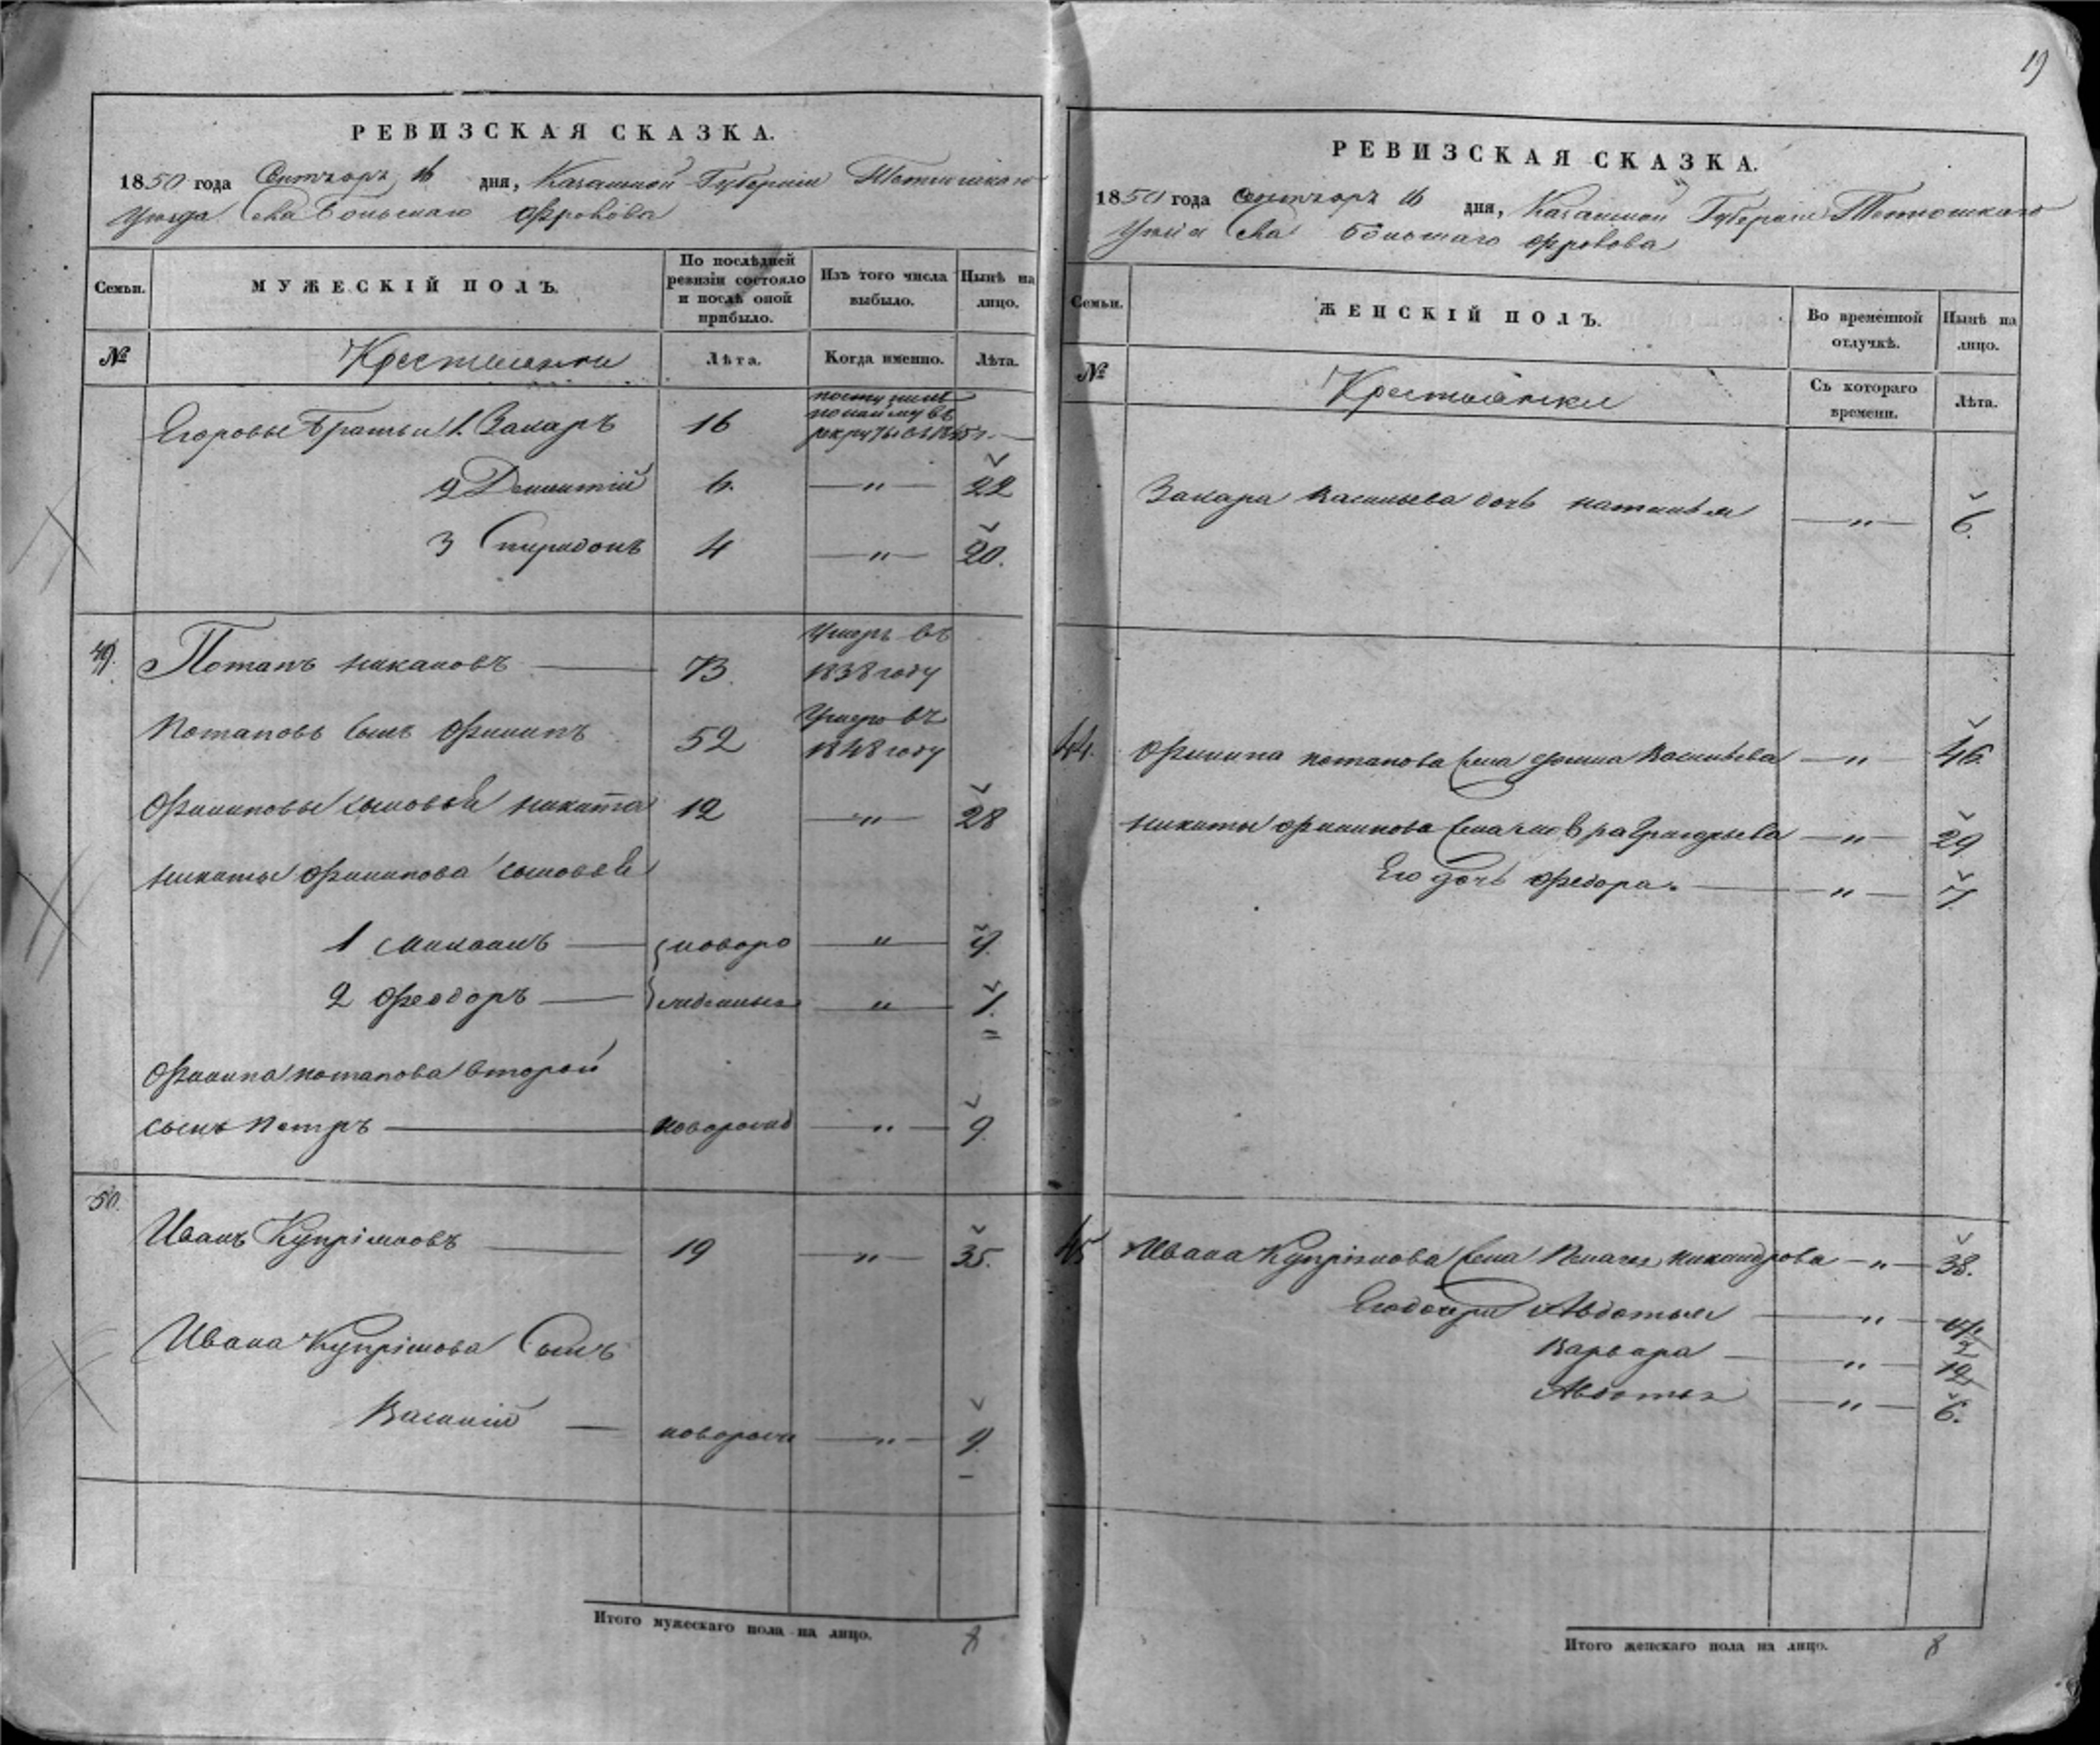 19
РЕВИЗСКАЯ СКАЗКА.
1850 года Сентябрь 16 дня, Казанской Губернiи Тетюшскаго
Уезда Села Большаго Фролова
Семьи.
МУЖЕСКIЙ ПОЛЪ.
По послѣдней ревизiи состояло и послѣ оной прибыло.
Изъ того числа выбыло.
Нынѣ на лицо.
№
Крестьяны
Лѣта.
Когда именно.
Лѣта.
Егоровы братья 1. Захаръ 16 поступилъ по найму въ рекруты въ
2 Дементiй 6. — " — 22
3 Спиридонъ 4 — " — 20.
49. Потапъ никановъ — 73. Умеръ въ 1838 году
Потаповъ сынъ Филипъ 52 Умеръ въ 1848 году
Филиповы сыновья никита 12 — " — 28
никиты филипова сыновья
1 — новоро — " — 9.
2 Феодоръ — жденныя — " — 1.
Филипа потапова второй
сынъ петръ — новорожд — " — 9.
50.
Иванъ Купрiяновъ — 19 — " — 35.
Ивана Купрiянова Сынъ
Василiй — новорож — " — 9.
Итого мужескаго пола на лицо. 8
РЕВИЗСКАЯ СКАЗКА.
1850 года Сентябрь 16 дня, Казанской Губернiи Тетюшскаго
Села Большаго Фролова
Семьи.
ЖЕНСКIЙ ПОЛЪ.
Во временной отлучкѣ.
Нынѣ на лицо.
№
Крестьянки
Съ котораго времени.
Лѣта.
Захара Васильева дочь наталья — " — 6.
44. Филипа потапова жена Васильева — " — 46.
никиты филипова жена Григорьева — " — 29
Его дочь Федора — " — 7.
45 Ивана Купрiянова жена Пелагея никандрова — " — 38.
Его дочери Авдотья — " —
Варвара — " — 12
Авдотья — " — 6.
Итого женскаго пола на лицо. 8